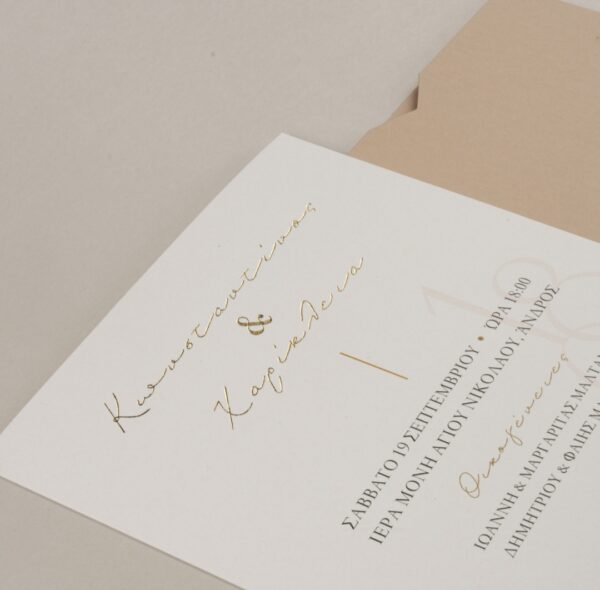 Κωνσταντίνος
&
Χαρίκλεια
18
ΣΑΒΒΑΤΟ 19 ΣΕΠΤΕΜΒΡΙΟΥ • ΏΡΑ 18:00
ΙΕΡΑ ΜΟΝΗ ΑΓΙΟΥ ΝΙΚΟΛΑΟΥ, ΑΝΔΡΟΣ
Οικογένειες
ΙΩΑΝΝΗ & ΜΑΡΓΑΡΙΤΑΣ
ΔΗΜΗΤΡΙΟΥ & ΦΑΙΗΣ